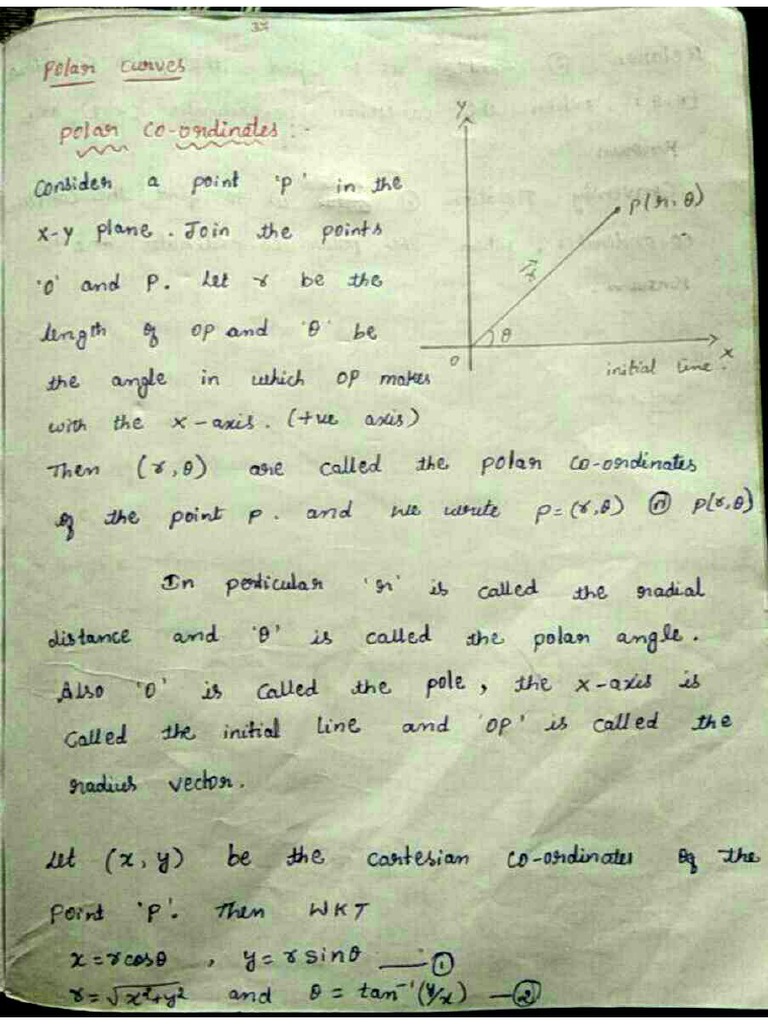 Polar curves
Polar co-ordinates :-
Consider a point 'P' in the
x-y plane. Join the points
'O' and P. Let r be the
length of OP and 'θ' be
the angle in which OP makes
with the x-axis. (+ve axis)
Y
P(r, θ)
r
θ
O
X
initial line.
Then (r, θ) are called the polar co-ordinates
of the point P. and we write P=(r,θ) or P(r,θ)
In perticular 'r' is called the radial
distance and 'θ' is called the polar angle.
Also 'O' is called the pole, the x-axis is
called the initial line and 'OP' is called the
radius vector.
Let (x, y) be the cartesian co-ordinates of the
point 'P'. Then WKT
x = r cosθ , y = r sinθ —— ①
r = √x²+y² and θ = tan⁻¹(y/x) —②